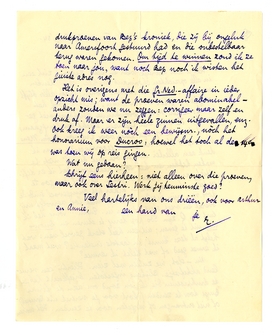 drukproeven van Beg's kroniek, die zij bij ongeluk
naar Amersfoort gestuurd had en die onbestelbaar
terug waren gekomen. Om tijd te winnen zond ik ze
toen naar jou, want noch Beg noch ik wisten het
juiste adres nog.
Het is overigens met die Gr.Ned.-affaire in ieder
opzicht mis; want de proeven waren abominabel -
anders zonden we nog zoo, correctie maar zelf en
druk af. Maar er zijn heele zinnen uitgevallen, enz.
Ook kreeg ik weer nòch een bewijsnr., nòch het
honorarium voor Ducroo, hoewel het toch al de
was toen wij op reis gingen.
Wat nu gedaan?
Schrijf eens hierheen: niet alleen over die proeven,
maar ook over Sestri. Werk jij tenminste goed?
Veel hartelijks van ons drieën, ook voor Arthur
en Annie, een hand van je
E.